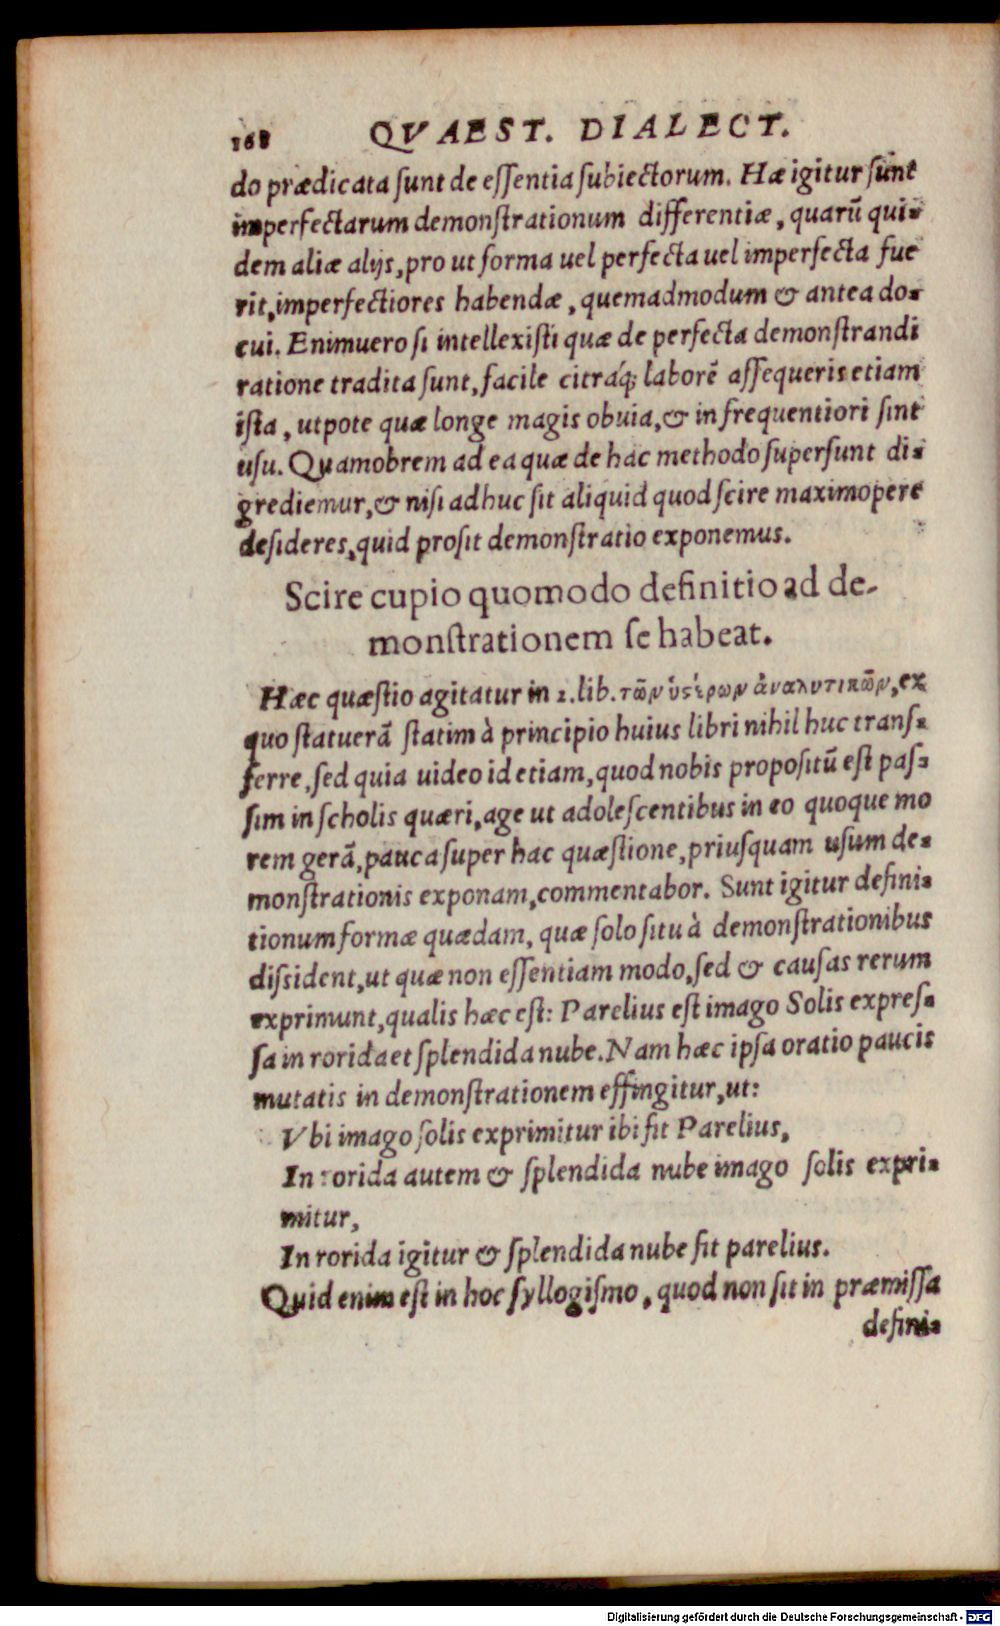 168 QVAEST. DIALECT.
do prædicata ſunt de eſſentia ſubiectorum. Hæ igitur ſunt
imperfectarum demonſtrationum differentiæ, quarũ qui-
dem aliæ alijs, pro ut forma uel perfecta uel imperfecta fue
rit, imperfectiores habendæ, quemadmodum & antea do-
cui. Enimuero ſi intellexiſti quæ de perfecta demonſtrandi
ratione tradita ſunt, facile citráq; laborẽ aſſequeris etiam
iſta, utpote quæ longe magis obuia, & in frequentiori ſint
uſu. Quamobrem ad ea quæ de hac methodo ſuperſunt di-
grediemur, & niſi adhuc ſit aliquid quod ſcire maximopere
deſideres, quid proſit demonſtratio exponemus.
Scire cupio quomodo definitio ad de-
monſtrationem ſe habeat.
Hæc quæſtio agitatur in 2. lib. τῶν ὑστέρων ἀναλυτικῶν, ex
quo ſtatuerã ſtatim à principio huius libri nihil huc tranſ-
ferre, ſed quia uideo id etiam, quod nobis propoſitũ eſt paſ-
ſim in ſcholis quæri, age ut adoleſcentibus in eo quoque mo
rem gerã, pauca ſuper hac quæſtione, priuſquam uſum de-
monſtrationis exponam, commentabor. Sunt igitur defini-
tionum formæ quædam, quæ ſolo ſitu à demonſtrationibus
diſsident, ut quæ non eſſentiam modo, ſed & cauſas rerum
exprimunt, qualis hæc eſt: Parelius eſt imago Solis expreſ-
ſa in rorida et ſplendida nube. Nam hæc ipſa oratio paucis
mutatis in demonſtrationem effingitur, ut:
Vbi imago ſolis exprimitur ibi fit Parelius,
In rorida autem & ſplendida nube imago ſolis expri-
mitur,
In rorida igitur & ſplendida nube fit parelius.
Quid enim eſt in hoc ſyllogiſmo, quod non ſit in præmiſſa
defini-
Digitalisierung gefördert durch die Deutsche Forschungsgemeinschaft - DFG